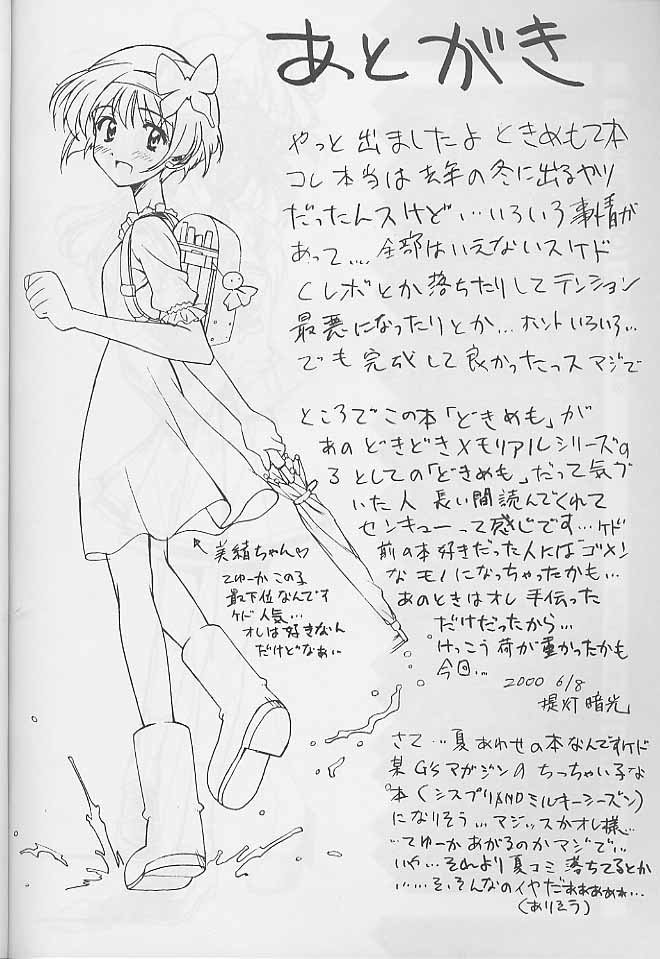 あとがき
やっと出ましたよ ときめもて本
コレ本当は去年の冬に出るやり
だったんスけど…いろいろ事情が
あって… 全部はいえないスケド
Cレボとか落ちたりしてテンション
最悪になったりとか…ホントいろいろ…
でも完成して良かったっスマジで
ところでこの本「どきめも」が
あのどきどきメモリアルシリーズの
3としての「どきめも」だって気づ
いた人 長い間読んでくれて
センキューって感じです…ケド
前の本好きだった人には「ゴメン」
なモノになっちゃったかも…
あのときはオレ手伝った
だけだったから…
けっこう荷が重かったかも
今回…
2000 6/8
提灯暗光
美緒ちゃん♡
てゆーかこの子
最下位なんです
ケド人気…
オレは好きなん
だけどなぁ…
さて…夏あわせの本なんですケド
某G'sマガジンのちっちゃい子な
本(シスプリANDミルキーシーズン)
になりそう…マジッスかオレ様…
…てゆーかあがるのかマジで…
いや…それより夏コミ落ちてるとか
……そ、そんなのイヤだぁぁぁぁぁ…
(ありそう)